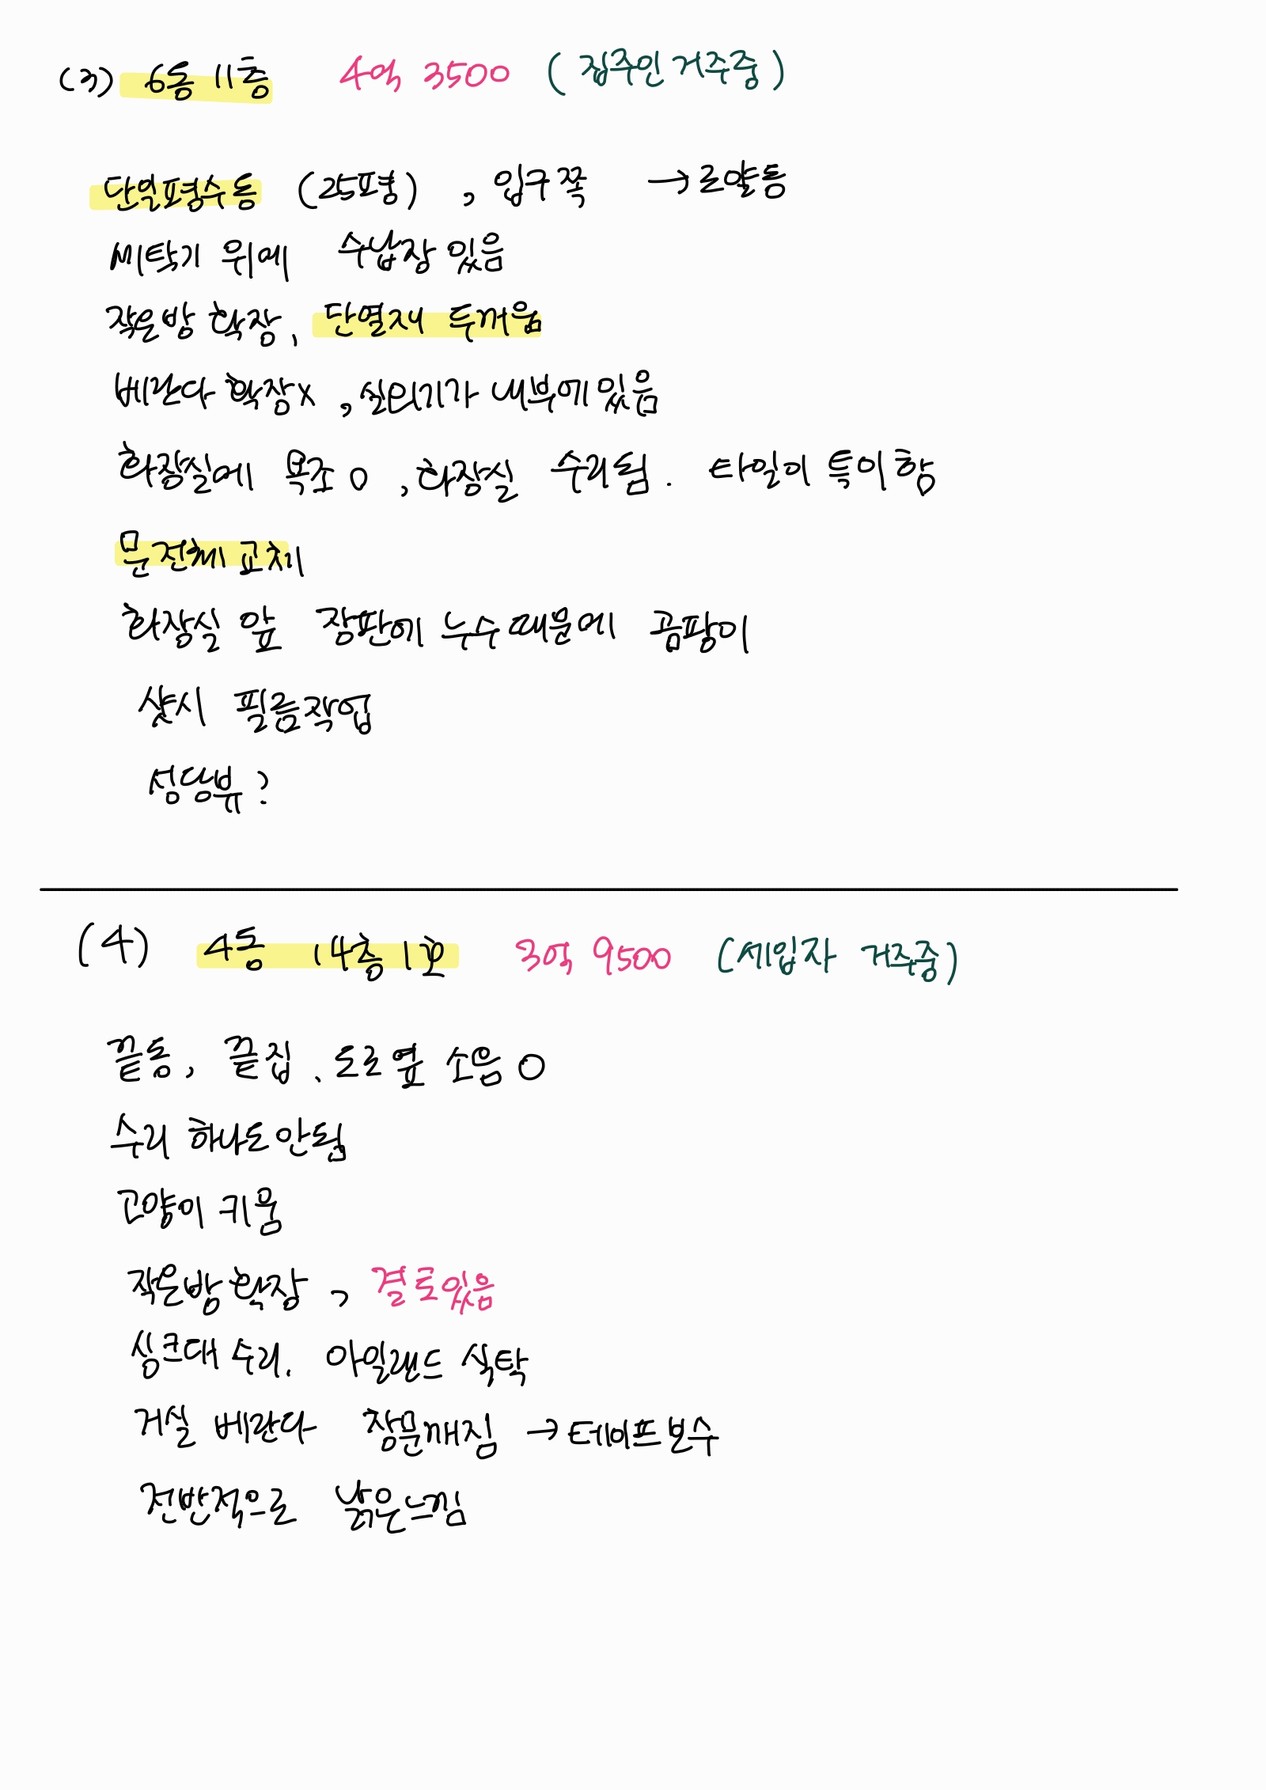 (3) 6동 11층 4억 3500 (집주인 거주중)
단일평수동 (25평) , 입구쪽 → 로얄동
세탁기 위에 수납장 있음
작은방 확장, 단열재 두꺼움
베란다 확장x , 실외기가 내부에 있음
화장실에 욕조 O , 화장실 수리됨. 타일이 특이함
문전체 교체
화장실 앞 장판에 누수때문에 곰팡이
샷시 필름작업
성당뷰?
(4) 4동 14층 1호 3억 9500 (세입자 거주중)
끝동, 끝집. 도로옆 소음 O
수리 하나도안됨
고양이 키움
작은방 확장 , 결로있음
싱크대 수리. 아일랜드 식탁
거실 베란다 창문깨짐 → 테이프보수
전반적으로 낡은느낌